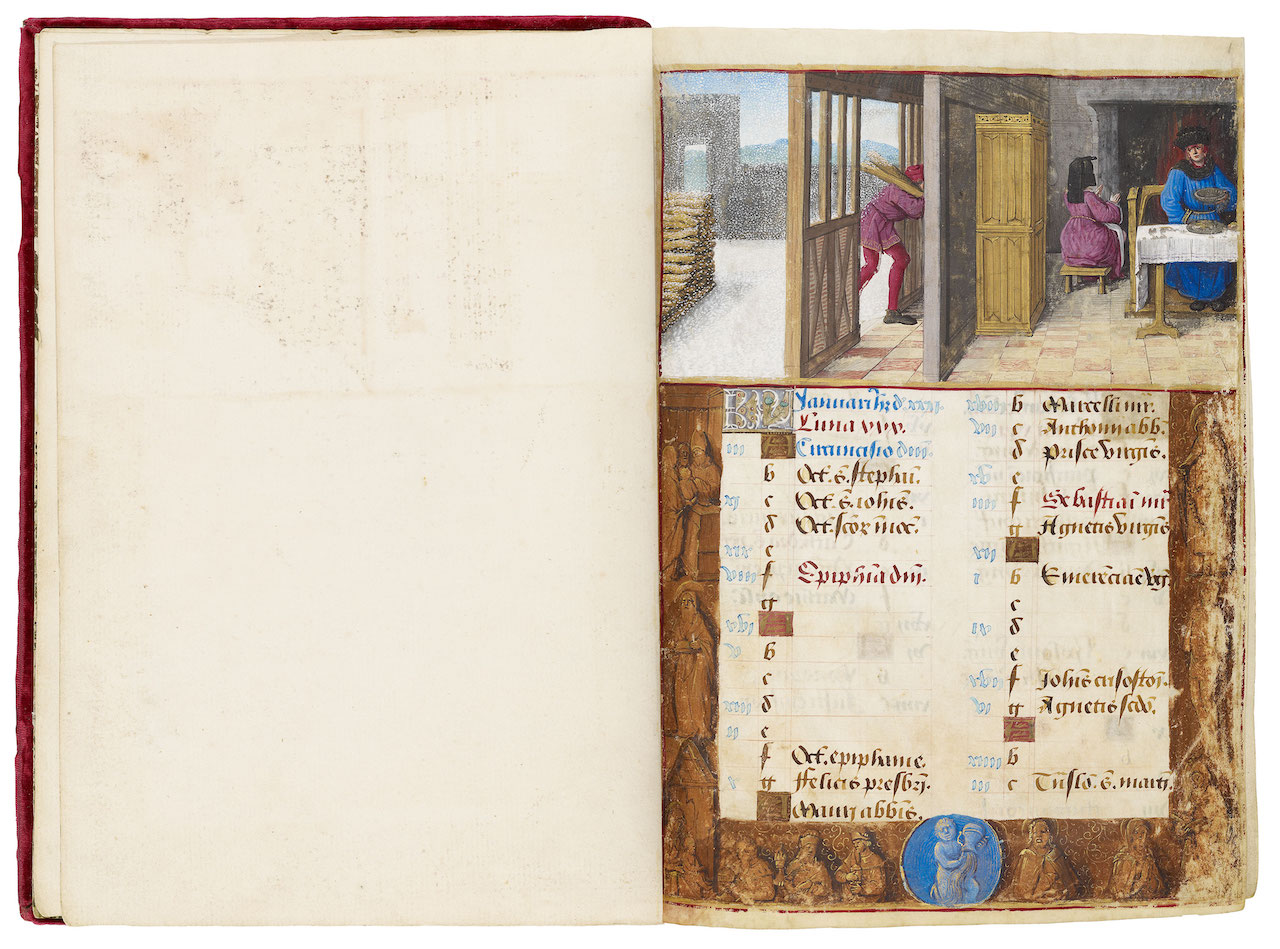 KL Januari9 ht d. xxxi.
Luna xxx.
iii A Circuncisio dni.
b Oct. s. stephani.
xi c Oct. s. iohis.
d Oct. scor inoc.
xix e
viii f Epiphia dni.
g
xvi A
v b
c
xiii d
ii e
f Oct. epiphanie.
x g Felicis presbri.
A Mauri abbis.
xviii b Marcelli mr.
vii c Anthonii abb.
d Prisce virgis.
xv e
iiii f Sebastiai mr
g Agnetis virgis
xii A
i b Emerenciae vg
c
ix d
e
xvii f Johis crisostoi.
vi g Agnetis scdo.
A
xiiii b
iii c s. marci.